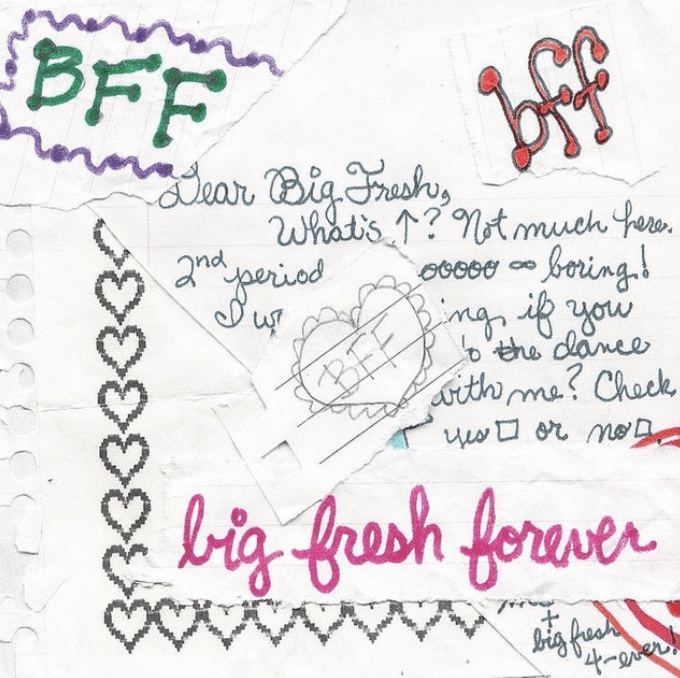 BFF
bff
Dear Big Fresh,
What's ↑? Not much here.
2nd period ooooo ∞ boring!
I w ing, if you
o the dance
with me? Check
yes □ or no □.
BFF
big fresh forever
+
big fresh
4-ever!